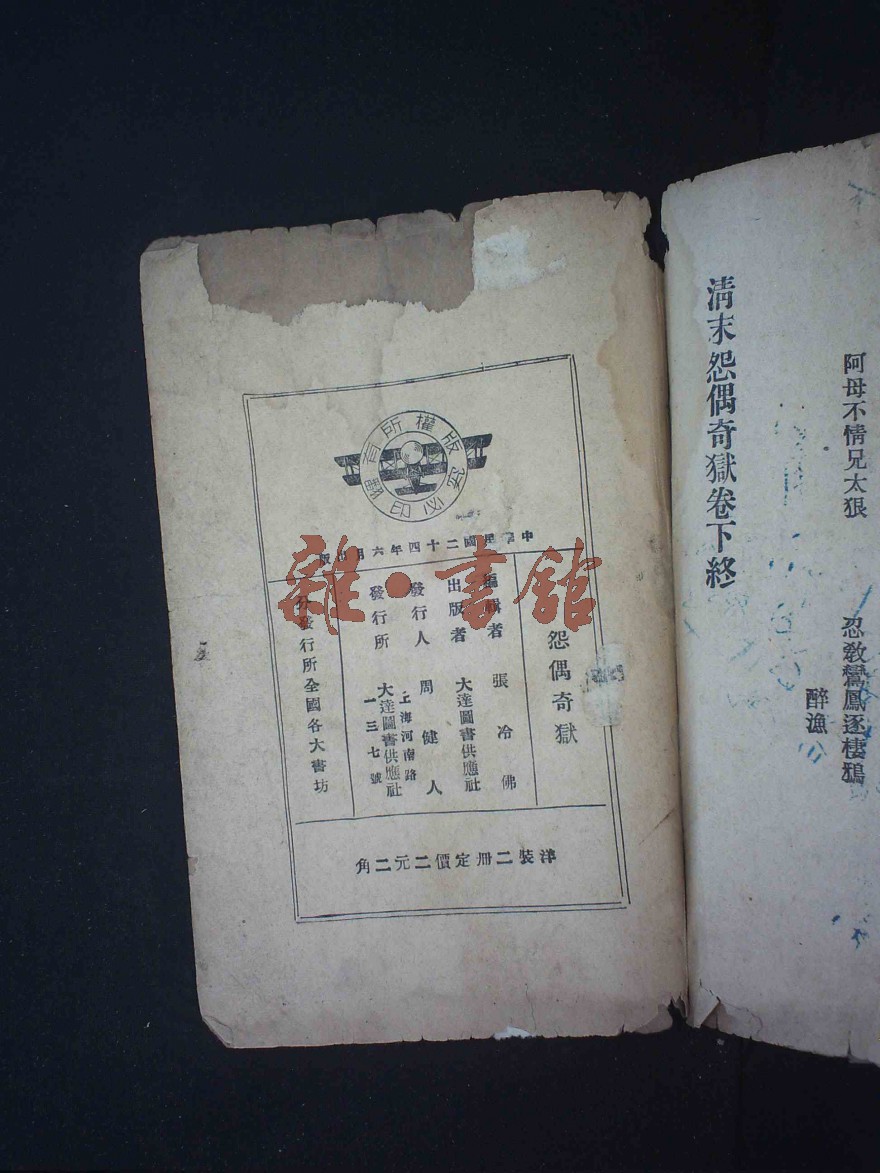 阿母不情兄太狠　忍教鸞鳳逐棲鴉
醉漁
清末怨偶奇獄卷下終
版權所有
翻印必究
中華民國二十四年六月出版
怨偶奇獄
編輯者　張冷佛
出版者　大達圖書供應社
發行人　周健人
發行所　上海河南路一三七號
大達圖書供應社
分發行所全國各大書坊
洋裝二册定價二元二角
雜·書館